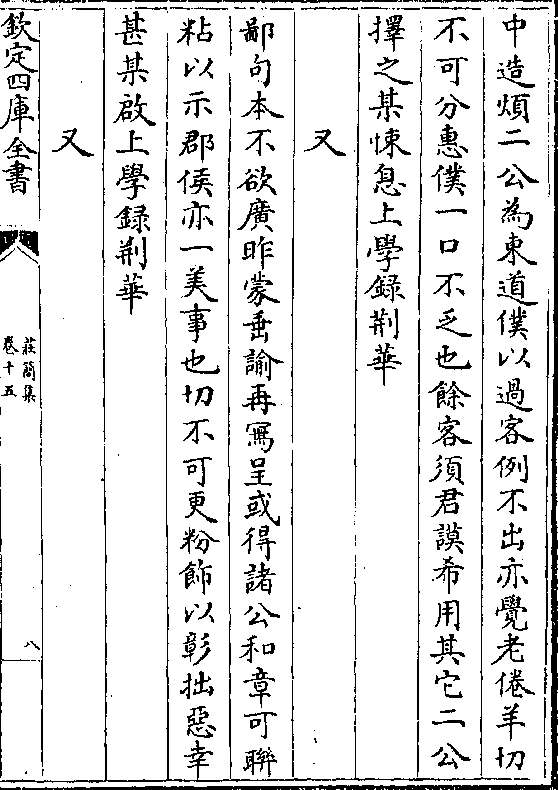 中造煩二公為東道僕以過客例不出亦覺老倦羊切
不可分惠僕一口不乏也餘客須君謨希用其它二公
擇之某悚息上學録荆華
又
鄙句本不欲廣昨蒙垂諭再寫呈或得諸公和章可聯
粘以示郡侯亦一美事也切不可更粉飾以彰拙惡幸
甚某啟上學録荆華
又
欽定四庫全書
莊簡集
卷十五
八